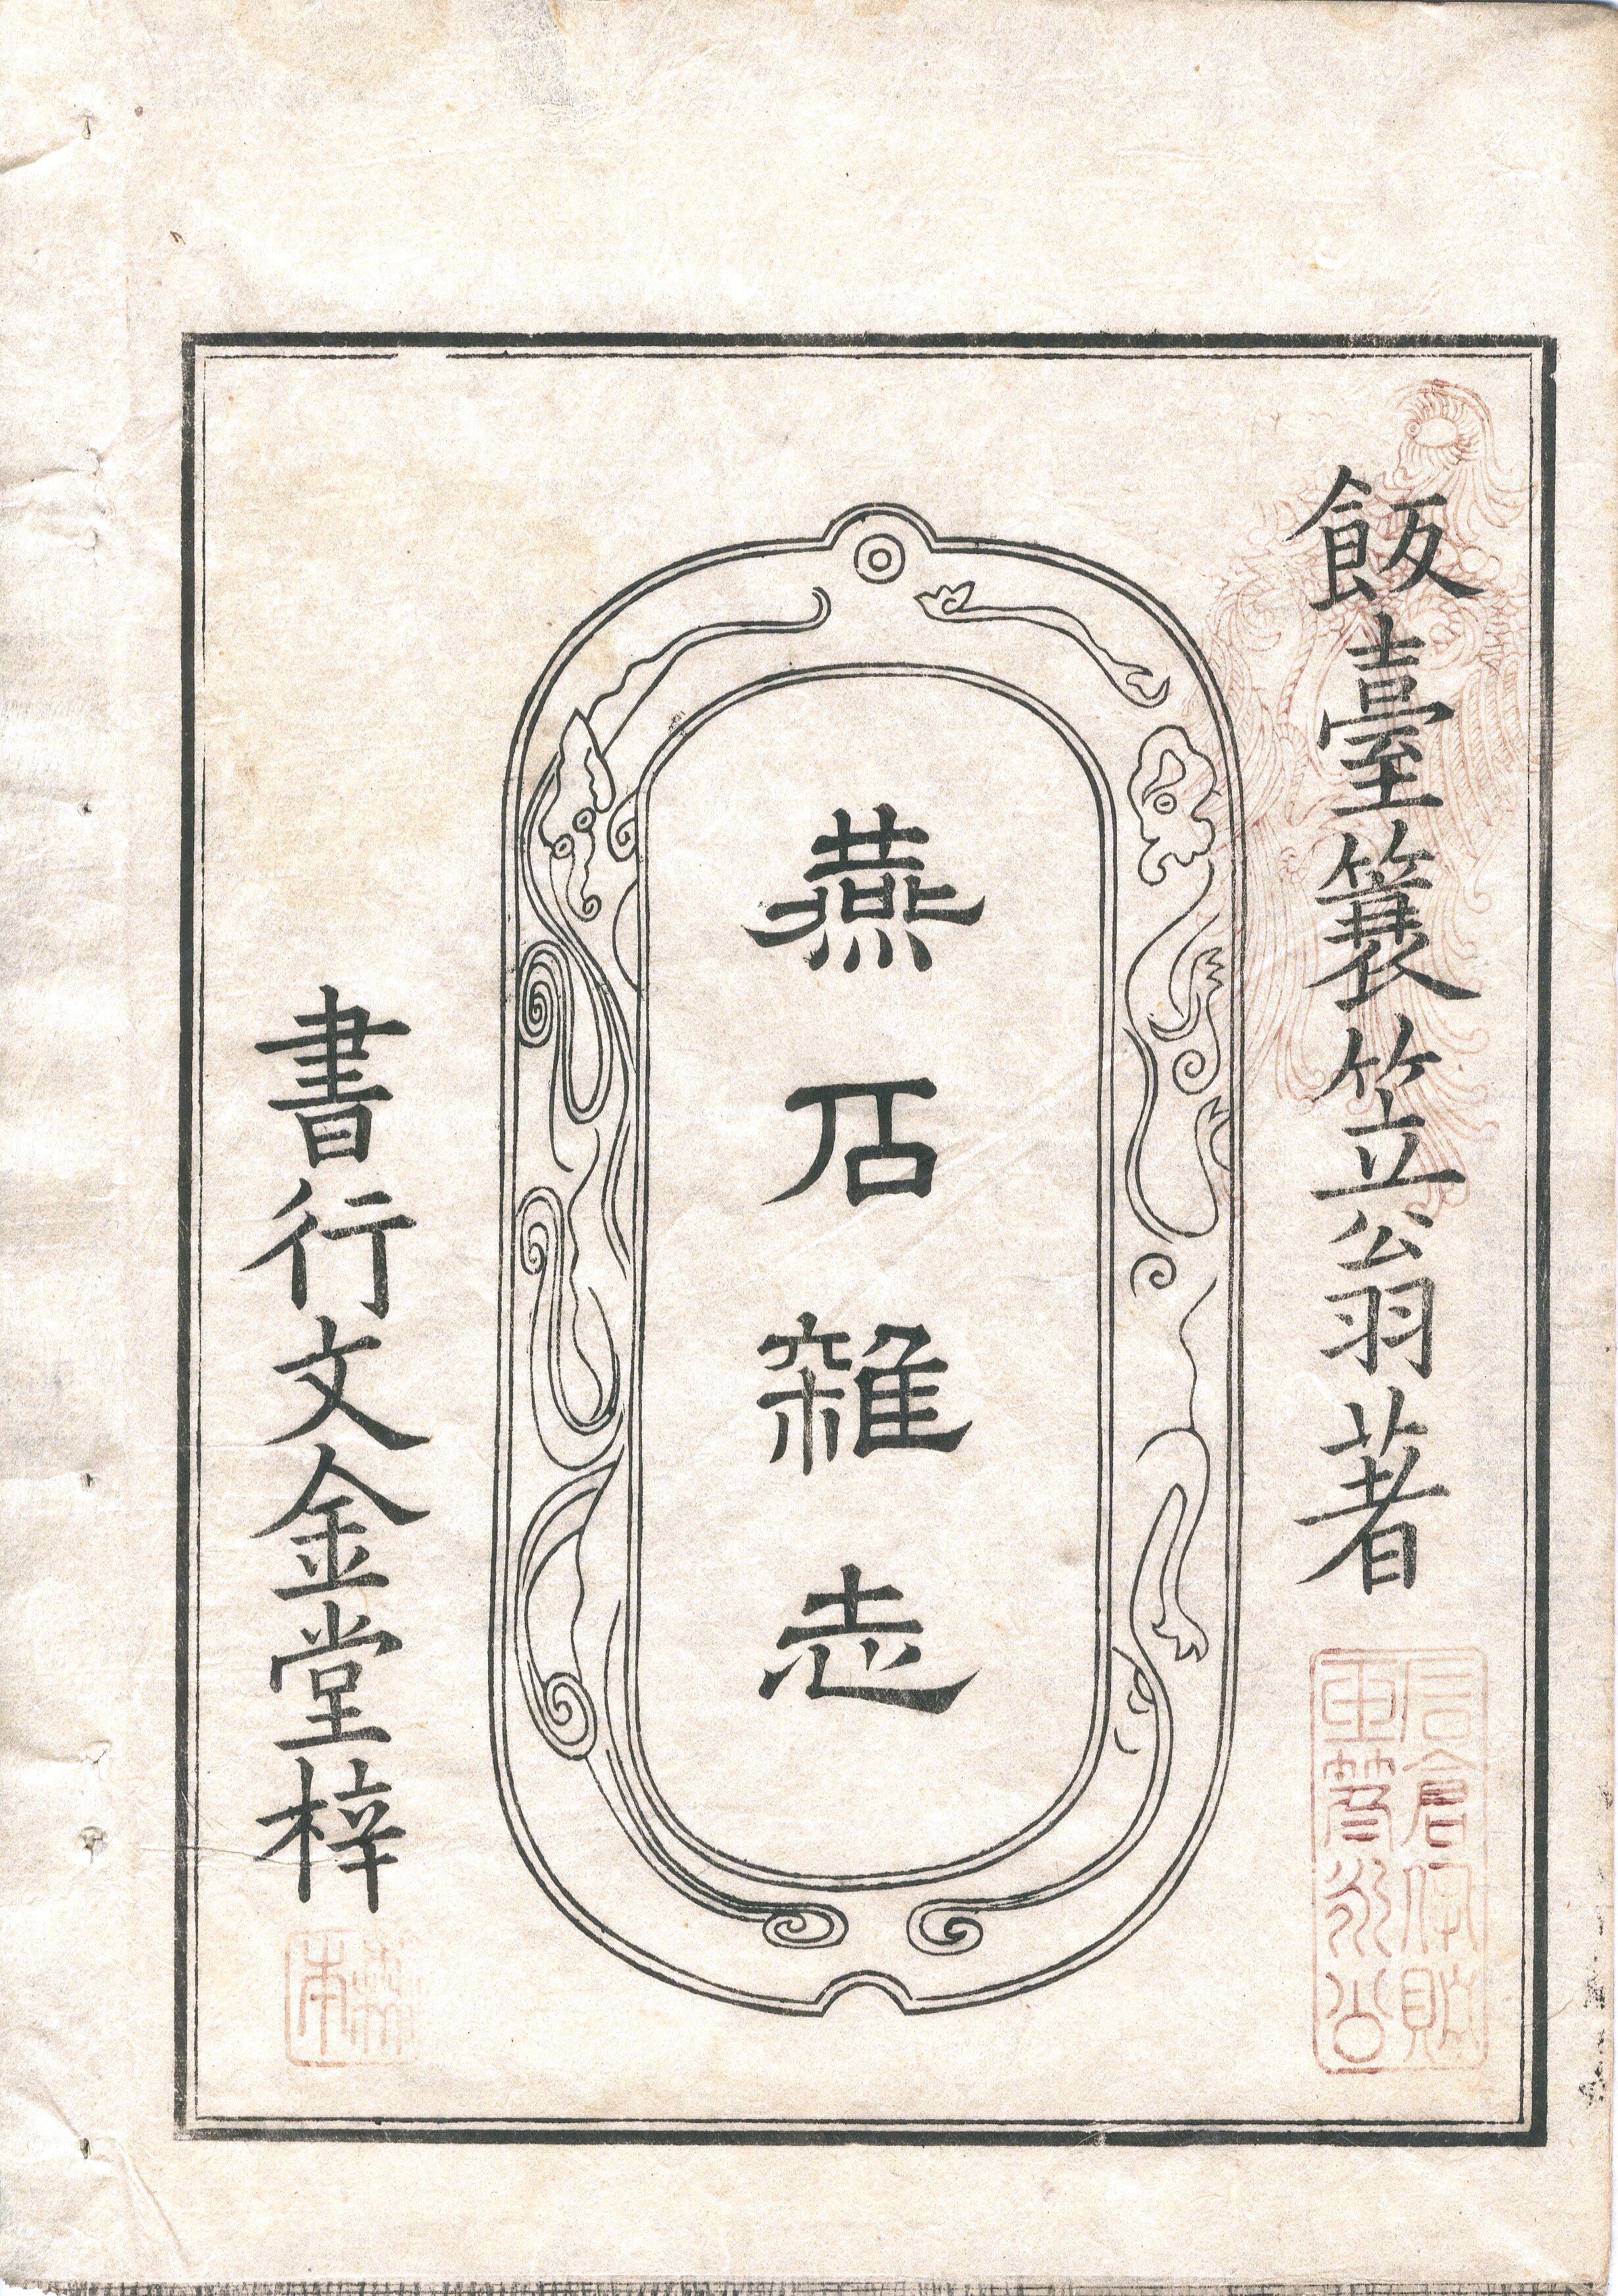 飯臺簑笠翁著
燕石雜志
書行文金堂梓
森本